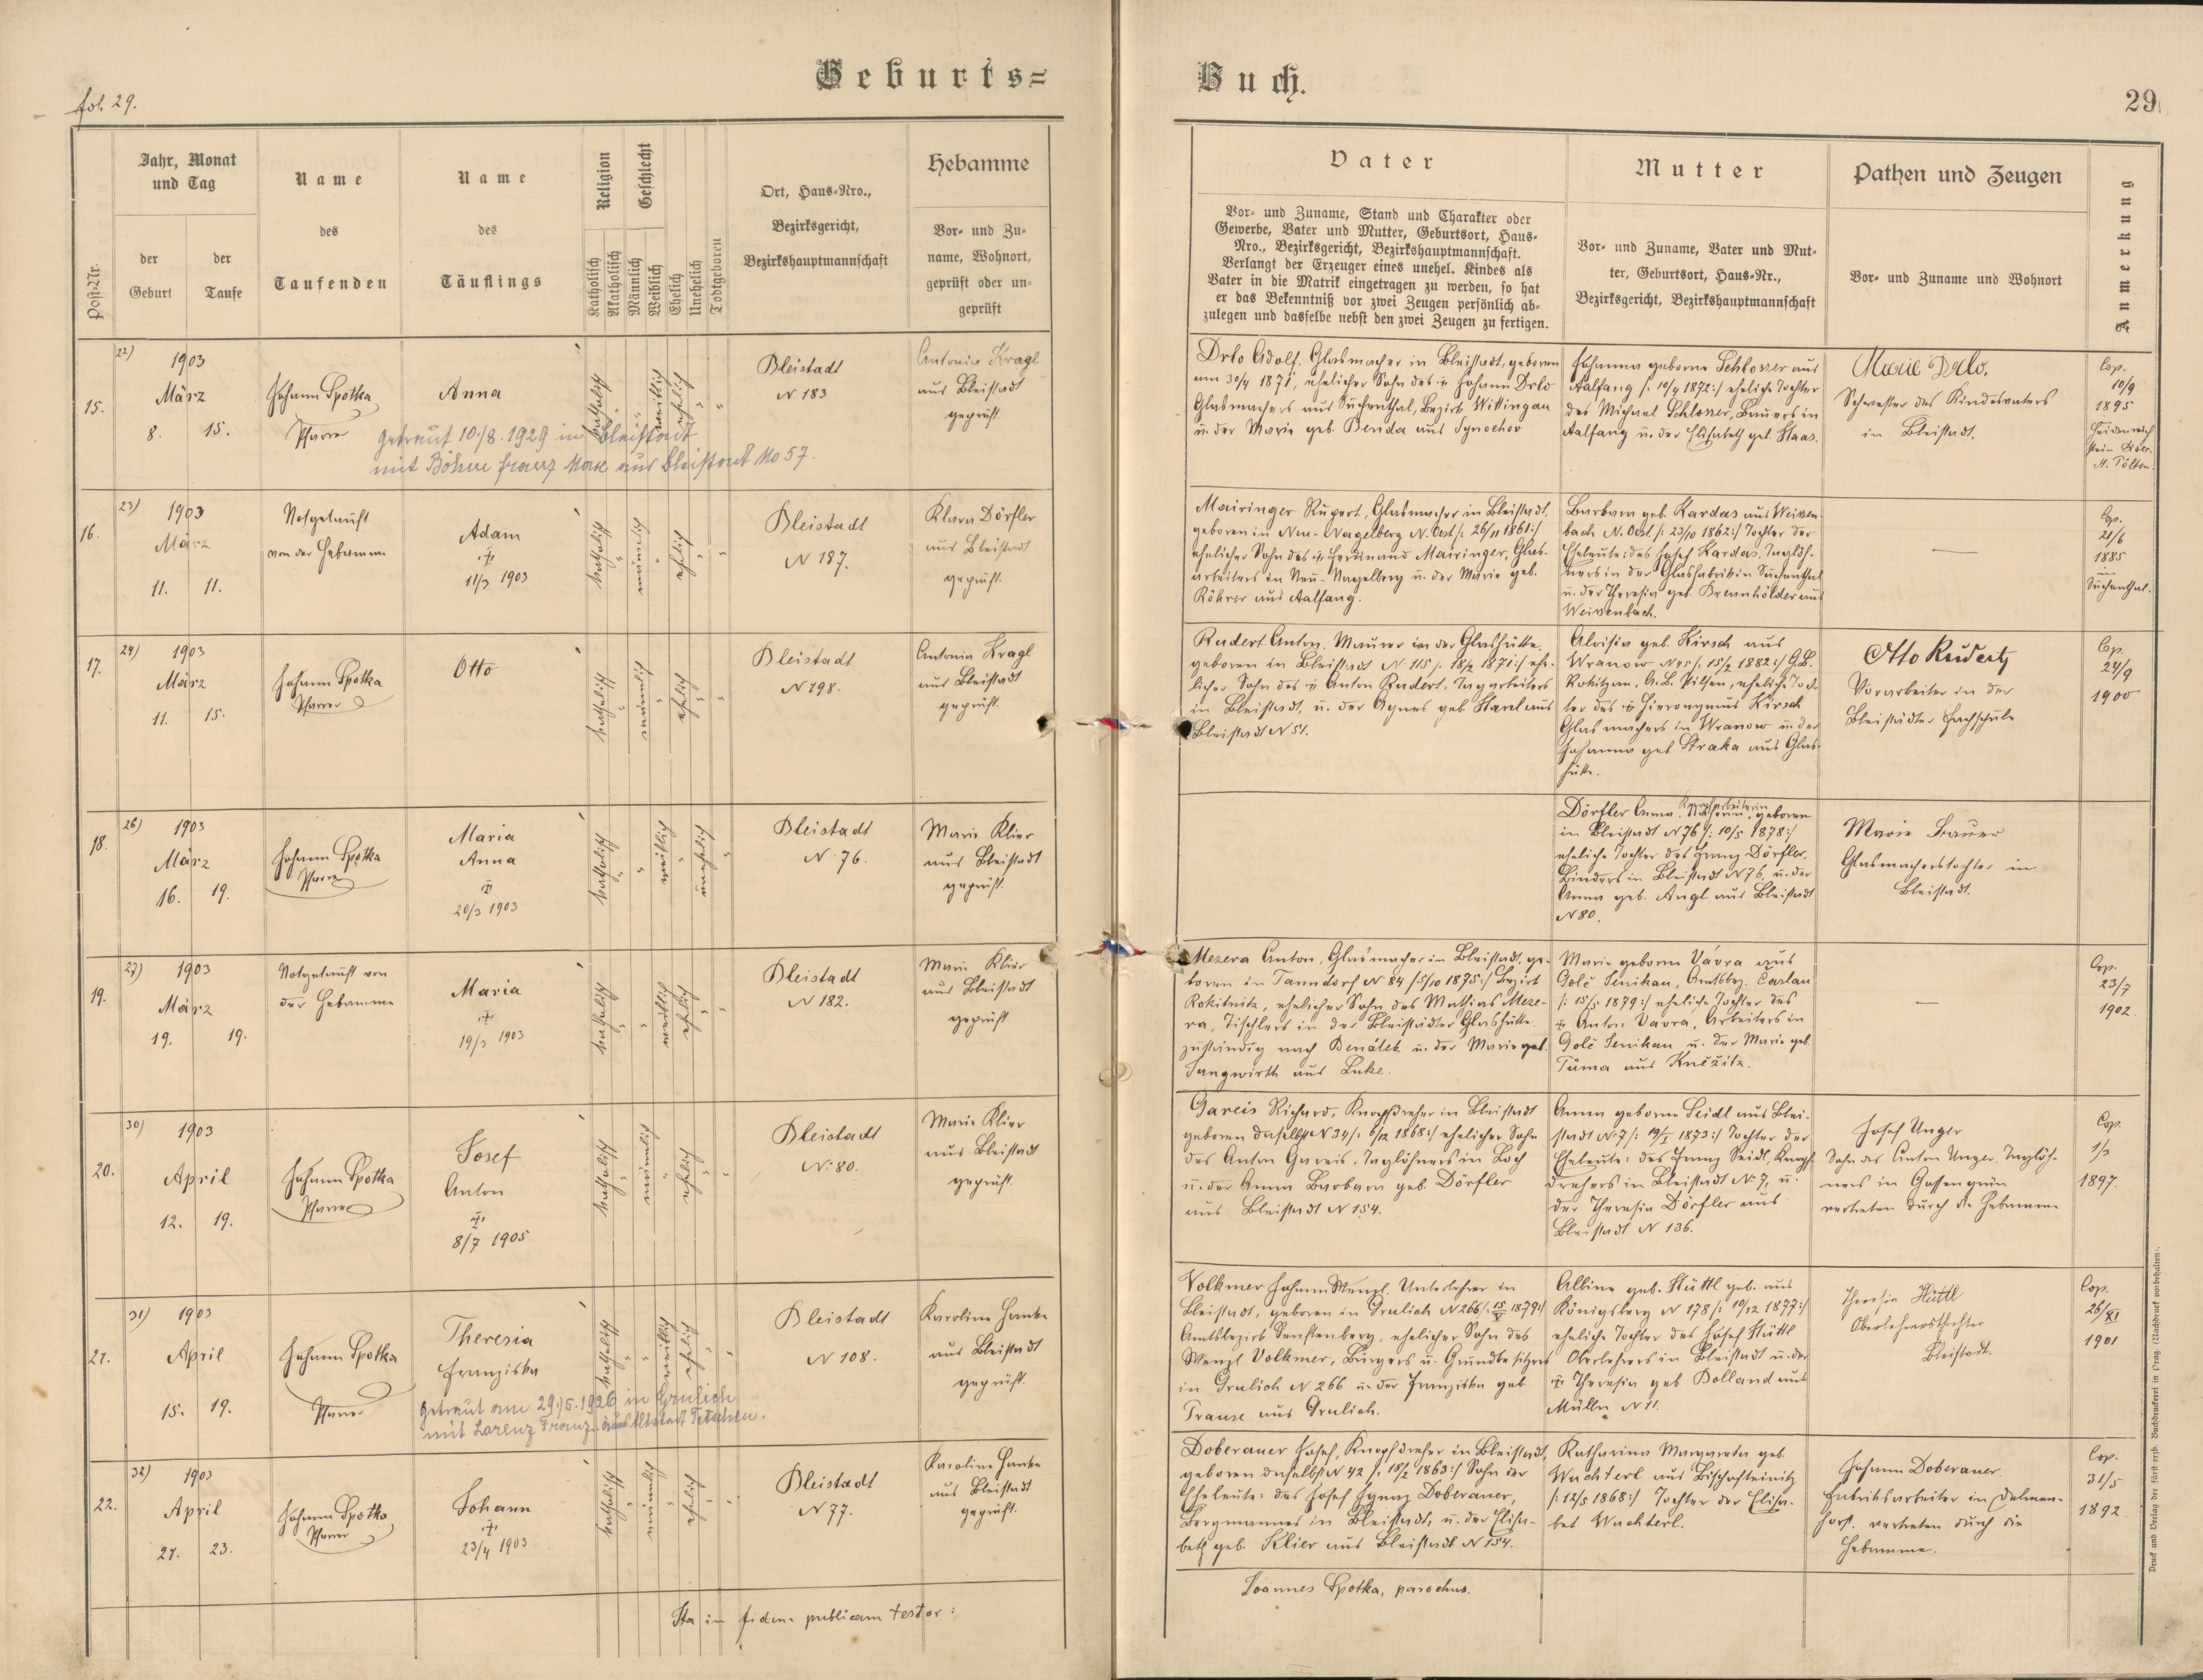 fol. 29.
Geburts=
Buch.
29
Post-Nr.
Jahr, Monat
und Tag
der
Geburt
der
Taufe
Name
des
Taufenden
Name
des
Täuflings
Religion
Katholisch
Akatholisch
Geschlecht
Männlich
Weiblich
Ehelich
Unehelich
Todtgeboren
Ort, Haus-Nro.,
Bezirksgericht,
Bezirkshauptmannschaft
Hebamme
Vor- und Zu-
name, Wohnort,
geprüft oder un-
geprüft
Vater
Vor- und Zuname, Stand und Charakter oder
Gewerbe, Vater und Mutter, Geburtsort, Haus-
Nro., Bezirksgericht, Bezirkshauptmannschaft.
Verlangt der Erzeuger eines unehel. Kindes als
Vater in die Matrik eingetragen zu werden, so hat
er das Bekenntniß vor zwei Zeugen persönlich ab-
zulegen und dasselbe nebst den zwei Zeugen zu fertigen.
Mutter
Vor- und Zuname, Vater und Mut-
ter, Geburtsort, Haus-Nr.,
Bezirksgericht, Bezirkshauptmannschaft
Pathen und Zeugen
Vor- und Zuname und Wohnort
Anmerkung
15.
22)
1903
März
8. 15.
Johann Spotka
Pfarrer
Anna
katholisch
weiblich
ehelich
Bleistadt
N 183
Antonia Kragl
aus Bleistadt
geprüft.
getraut 10./8. 1929 in Bleistadt
mit Böhm Franz Max aus Bleistadt No 57.
Drlo Adolf, Glasmacher in Bleistadt, geboren
am 30/4 1871, ehelicher Sohn des † Johann Drlo
Glasmachers aus Suchenthal, Bezirk Wittingau
u. der Marie geb. Benda aus Synochov
Johanna geborne Schlosser aus
Aalfang /: 10/4 1872:/ eheliche Tochter
des Michael Schlosser, Bauers in
Aalfang u. der Elisabeth geb. Haas.
Marie Drlo.
Schwester des Kindesvaters
in Bleistadt.
Cop.
10/9
1895
Heidenreich
stein Diöc.
St. Pölten.
16.
23)
1903
März
11. 11.
Notgetauft
von der Hebamme
Adam
†
11/3 1903
katholisch
männlich
ehelich
Bleistadt
N 187.
Klara Dörfler
aus Bleistadt
geprüft.
Mairinger Rupert, Glasmacher in Bleistadt,
geboren in Neu-Nagelberg N. Oest /: 26/11 1861:/
ehelicher Sohn des † Ferdinand Mairinger, Glas-
arbeiters in Neu-Nagelberg u. der Marie geb.
Röhrer aus Aalfang.
Barbara geb. Kardas aus Weissen-
bach N. Oest. /: 23/10 1862:/ Tochter der
Eheleute: des Josef Kardas, Taglöh-
ners in der Glasfabrik in Suchenthal
u. der Theresia geb. Brennhölder aus
Weissenbach.
—
Cop.
21/6
1885
in
Suchenthal.
17.
24)
1903
März
11. 15.
Johann Spotka
Pfarrer
Otto
katholisch
männlich
ehelich
Bleistadt
N 198.
Antonia Kragl
aus Bleistadt
geprüft.
Rudert Anton, Maurer in der Glashütte,
geboren in Bleistadt N 115 /: 18/2 1871:/ ehe-
licher Sohn des † Anton Rudert, Tagarbeiters
in Bleistadt, u. der Agnes geb. Stark aus
Bleistadt N 51.
Aloisia geb. Kirsch aus
Wranow N 45 /: 15/2 1882:/ G.B.
Rokitzan, A.B. Pilsen, eheliche Toch-
ter des † Hieronymus Kirsch
Glasmachers in Wranow u. der
Johanna geb. Straka aus Glas-
hütte.
Otto Rudert,
Vorarbeiter in der
Bleistädter Fachschule
Cop.
24/9
1900
18.
26)
1903
März
16. 19.
Johann Spotka
Pfarrer
Maria
Anna
†
20/3 1903
katholisch
weiblich
unehelich
Bleistadt
N. 76.
Marie Klier
aus Bleistadt
geprüft.
Dörfler Anna, Näherin, geboren
in Bleistadt N 76 /: 10/5 1878:/
eheliche Tochter des Franz Dörfler,
Binders in Bleistadt N 76, u. der
Anna geb. Angl aus Bleistadt
N 80.
Marie Bauer
Glasmacherstochter in
Bleistadt.
19.
27)
1903
März
19. 19.
Notgetauft von
der Hebamme
Maria
†
19/3 1903
katholisch
weiblich
ehelich
Bleistadt
N 182.
Marie Klier
aus Bleistadt
geprüft
Mezera Anton, Glasmacher in Bleistadt, ge-
boren in Tanndorf N 84 /: 5/10 1875:/ Bezirk
Rokitnitz, ehelicher Sohn des Mathias Meze-
ra, Tischlers in der Bleistädter Glashütte
zuständig nach Benátek u. der Marie geb.
Jungwirth aus Luke.
Marie geborne Vávra aus
Golč Jenikau, Amtsbez. Časlau
/: 15/5 1879:/ eheliche Tochter des
† Anton Vavra, Arbeiters in
Golč Jenikau u. der Marie geb.
Tůma aus Kněžitz.
—
Cop.
23/7
1902.
20.
30)
1903
April
12. 19.
Johann Spotka
Pfarrer
Josef
Anton
†
8/7 1905
katholisch
männlich
ehelich
Bleistadt
N. 80.
Marie Klier
aus Bleistadt
geprüft.
Gareis Richard, Knopfdreher in Bleistadt
geboren daselbst N 34 /: 6/12 1868:/ ehelicher Sohn
des Anton Gareis, Taglöhners in Loch
u. der Anna Barbara geb. Dörfler
aus Bleistadt N 154.
Anna geborne Seidl aus Blei-
stadt N. 7 /: 19/I 1873:/ Tochter der
Eheleute: des Franz Seidl, Knopf-
drehers in Bleistadt N. 7, u.
der Theresia Dörfler aus
Bleistadt N 136.
Josef Unger
Sohn des Anton Unger, Taglöh-
ners in Gossengrün
vertreten durch die Hebamme
Cop.
1/3
1897.
21.
31)
1903
April
15. 19.
Johann Spotka
Pfarrer
Theresia
Franziska
katholisch
weiblich
ehelich
Bleistadt
N 108.
Karoline Hanke
aus Bleistadt
geprüft.
getraut am 29./5. 1926 in Grulich
mit Lorenz Franz aus Altstadt Tetschen.
Volkmer Johann Wenzl, Unterlehrer in
Bleistadt, geboren in Grulich N 266 /: 15/V 1879:/
Amtsbezirk Senftenberg, ehelicher Sohn des
Wenzl Volkmer, Bürgers u. Grundbesitzers
in Grulich N 266 u. der Franziska geb.
Prause aus Grulich.
Albine geb. Hüttl geb. aus
Königsberg N 178 /: 19/12 1877:/
eheliche Tochter des Josef Hüttl
Oberlehrers in Bleistadt u. der
† Theresia geb. Bolland aus
Mülln N 11.
Theresia Hüttl
Oberlehrerstochter
Bleistadt.
Cop.
26/XI
1901
22.
32)
1903
April
21. 23.
Johann Spotka
Pfarrer
Johann
†
23/4 1903
katholisch
männlich
ehelich
Bleistadt
N 77.
Karoline Hanke
aus Bleistadt
geprüft.
Doberauer Josef, Knopfdreher in Bleistadt,
geboren daselbst N 42 /: 18/2 1863:/ Sohn der
Eheleute: des Josef Ignaz Doberauer,
Bergmannes in Bleistadt, u. der Elisa-
beth geb. Klier aus Bleistadt N 154.
Katharina Margareta geb.
Wachterl aus Bischofteinitz
/: 12/5 1868:/ Tochter der Elisa-
bet Wachterl.
Johann Doberauer
Fabriksarbeiter in Delmen-
horst, vertreten durch die
Hebamme.
Cop.
31/5
1892
Ita in fidem publicam testor:
Joannes Spotka, parochus.
Druck und Verlag der fürst erzb. Buchdruckerei in Prag. (Nachdruck vorbehalten).